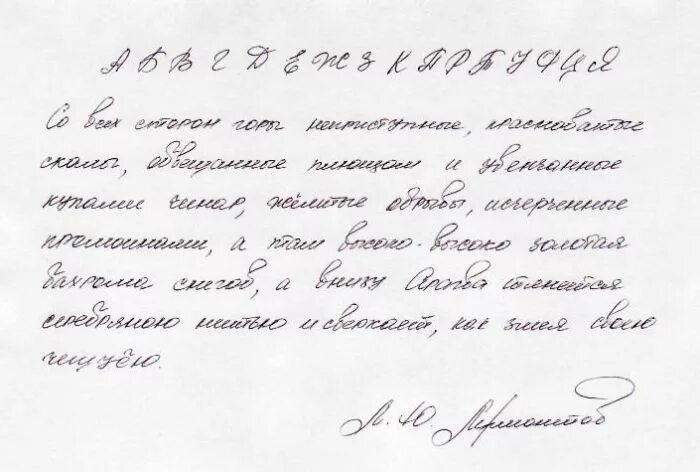 А Б В Г Д Е Ж З К П Р Т У Ф Ц Я
Со всех сторон горы неприступные, красноватые
скалы, обвешанные плющом и увенчанные
купами чинар, жёлтые обрывы, исчерченные
промоинами, а там высоко-высоко золотая
бахрома снегов, а внизу Арагва тянется
серебряною нитью и сверкает, как змея своею
чешуёю.
М. Ю. Лермонтов